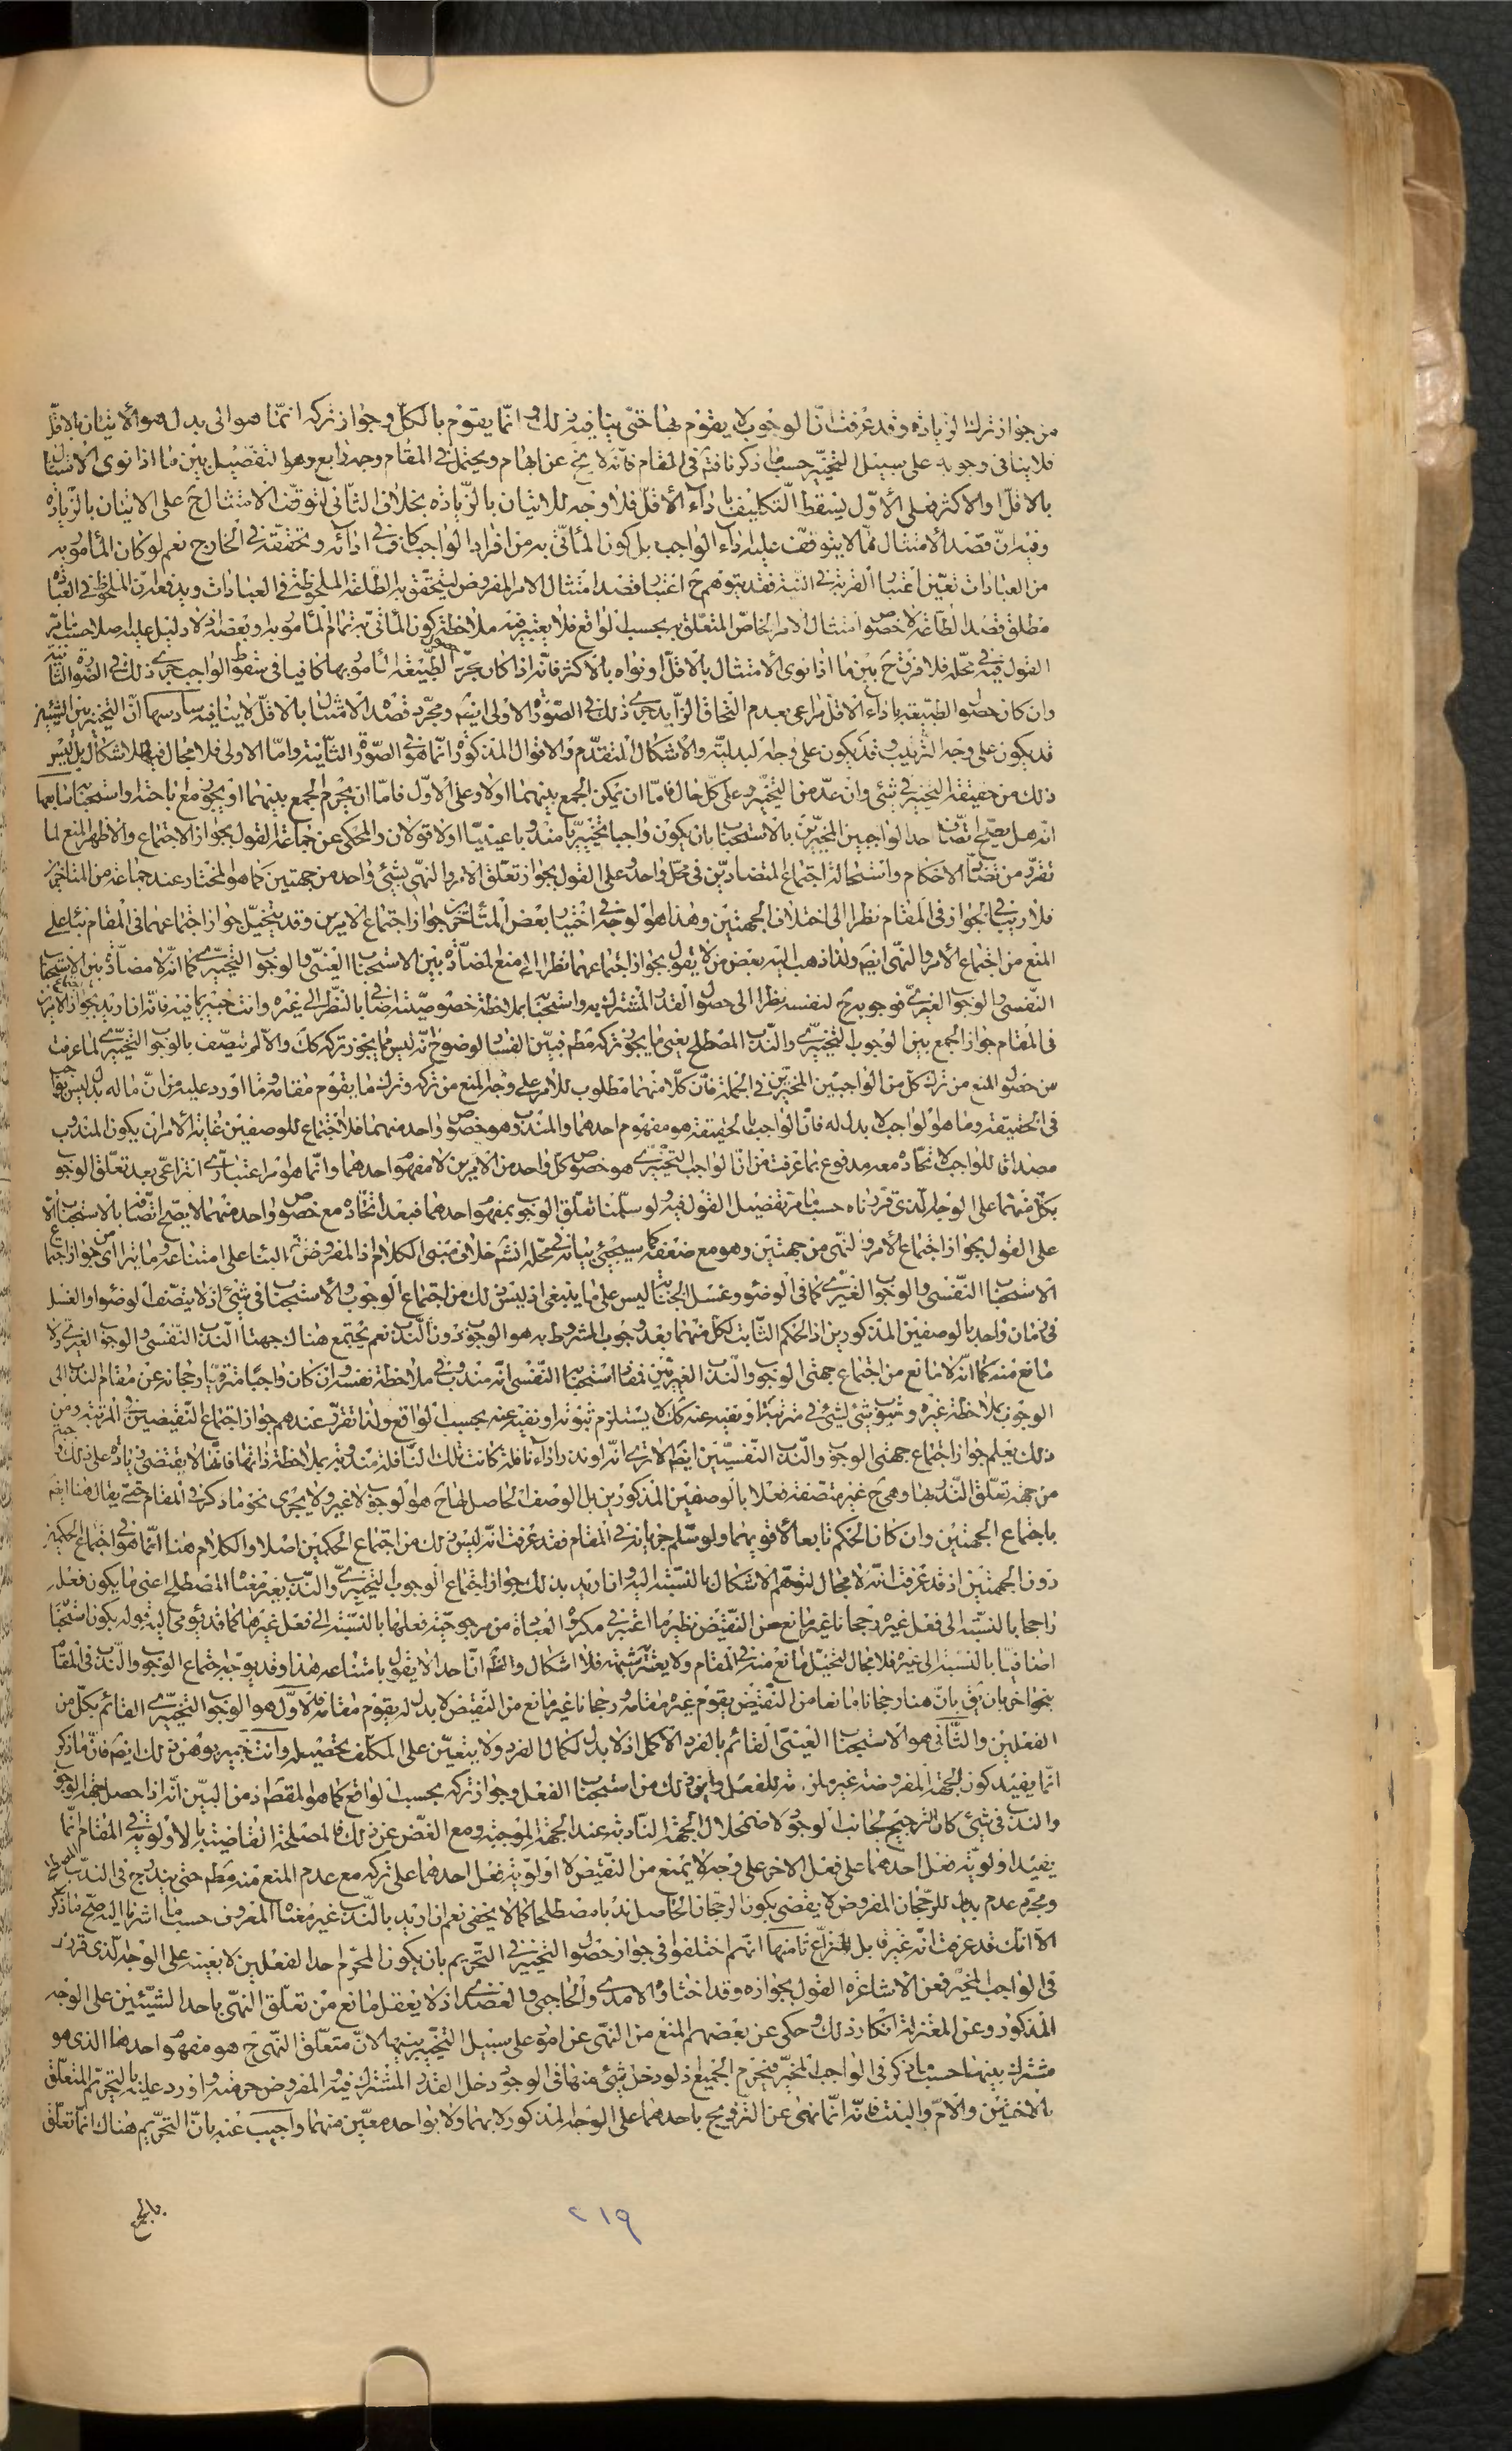 من جواز ترك الزيادة وقد عرفت انّ الوجوب لا يقوم بها حتى ينافيه ذلك وانّما يقوم بالكلّ وجواز تركه انّما هو الى بدل هو الاتيان بالاقلّ
فلا ينافى وجوبه على سبيل التخيير حسبما ذكرنا فتمّ فى المقام فانّه لا يخ عن ابهام ويحتمل فى المقام وجه رابع وهو التفصيل بين ما اذا نوى الامتثال
بالاقلّ او الاكثر فعلى الأوّل يسقط التكليف باداء الأقلّ فلا وجه للاتيان بالزّيادة بخلاف الثّانى لتوقّف الامتثال ح على الاتيان بالزيادة
وفيه انّ قصد الأمتثال ممّا لا يتوقف عليه اداء الواجب بل كون المأتّى به من افراد الواجب كاف فى ادائه وتحققه فى الخارج نعم لو كان المأمور به
من العبادات تعيّن اعتبار القربة فى النية فقد يتوهم ح اعتبار قصد امتثال الامر المفروض ليتحقق به الطاعة الملحوظة فى العبادات ويدفعه انّ الملحوظ فى العبادة
مطلق قصد الطّاعة لا خصوص امتثال الامر الخاصّ المتعلّق به بحسب الواقع فلا يعتبر فيه ملاحظة كون المأتىّ به تمام المأمور به او بعضه اذ لا دليل عليه اصلا حسبما يأتى
القول فيه فى محلّه فلا فرق ح بين ما اذا نوى الأمتثال بالاقلّ او نواه بالاكثر فانّه اذا كان مجرّد حصول الطّبيعة المأمور بها كافيا فى سقوط الواجب جرى ذلك فى الصّورة الثانية
وان كان حصول الطبيعة باداء الاقل مراعى بعدم التحاق الزّايد جرى ذلك فى الصّورة الاولى ايضا ومجرّد قصد الامتثال بالاقلّ لا ينافيه سادسها انّ التخيير بين الشيئين
قد يكون على وجه الترتيب وقد يكون على وجه البدليّة والاشكال المتقدّم والاقوال المذكورة انّما هو فى الصّورة الثّانية وامّا الاولى فلا مجال فيه للاشكال بل ليس
ذلك من حقيقة التخيير فى شئ وان عدّ من التخيير وعلى كلّ حال فامّا ان يمكن الجمع بينهما اولا وعلى الاوّل فامّا ان يحرم الجمع بينهما او يجوز مع اباحته او استحبابه سابعها
انّه هل يصحّ اتّصاف احد الواجبين المخيّرين بالاستحباب بان يكون واجبا تخييريّا مندوبا عينيّا اولا قولان والمحكى عن جماعة القول بجواز الاجتماع والاظهر المنع لما
تقرّر من تضادّ الاحكام واستحالة اجتماع المتضادّين فى محلّ واحد وعلى القول بجواز تعلّق الامر والنهى بشئ واحد من جهتين كما هو المختار عند جماعة من المتاخّرين
فلا ريب فى الجواز فى المقام نظرا الى اختلاف الجهتين وهذا هو الوجه فى اختيار بعض المتأخّرين جواز اجتماع الامرين وقد يتخيّل جواز اجتماعهما فى المقام بناء على
المنع من اجتماع الأمر والنهى ايضا ولذا ذهب اليه بعض من لا يقول بجواز اجتماعهما نظرا الى منع المضادّة بين الاستحباب العينى والوجوب التخييرى كما انّه لا مضادّة بين الاستحباب
النّفسى والوجوب الغيرى فوجوبه ح لنفسه نظرا الى حصول القدر المشترك به واستحبابه بملاحظة خصوصيّته اضافى بالنّظر الى غيره وانت خبير بما فيه فانّه ان اريد بجواز اجتماع الامرين
فى المقام جواز الجمع بين الوجوب التخييرى والنّدب المصطلح يعنى ما يجوز تركه مطم فبيّن الفساد لوضوح انّه ليس ممّا يجوز تركه كك والّا لم يتّصف بالوجوب التخييرى لما عرفت
من حصول المنع من ترك كلّ من الواجبين المخيّرين فى الجملة فانّ كلّا منهما مطلوب للآمر على وجه المنع من تركه وترك ما يقوم مقامه وما اورد عليه من انّ ما له بدل ليس بواجب
فى الحقيقة وما هو الواجب لا بدل له فانّ الواجب بالحقيقة هو مفهوم احدهما والمندوب هو خصوص واحد منهما فلا اجتماع للوصفين غاية الأمر ان يكون المندوب
مصداقا للواجب لاتّحاده معه مدفوع بما عرفت من انّ الواجب التخييرى هو خصوص كلّ واحد من الامرين لا مفهوم احدهما وانّما هو امر اعتبارىّ انتزاعى بعد تعلّق الوجوب
بكلّ منهما على الوجه الّذى قرّرناه حسبما مرّ تفصيل القول فيه ولو سلّمنا تعلّق الوجوب بمفهوم احدهما فبعد اتّحاده مع خصوص واحد منهما لا يصحّ اتّصافه بالاستحباب الّا
على القول بجواز اجتماع الأمر والنّهى من جهتين وهو مع ضعفه كما سيجئ بيانه فى محلّه انشم خلاف مبنى الكلام اذ المفروض البناء على امتناعه وما يترا اى من جواز اجتماع
الاستحباب النّفسى والوجوب الغيرى كما فى الوضوء وغسل الجنابة ليس على ما ينبغى اذ ليس ذلك من اجتماع الوجوب والأستحباب فى شئ اذ لا يتّصف الوضوء او الغسل
فى زمان واحد بالوصفين المذكورين اذ الحكم الثّابت لكلّ منهما بعد وجوب المشروط به هو الوجوب دون النّدب نعم يجتمع هناك جهتا النّدب النّفسى والوجوب الغيرى ولا
مانع منه كما انّه لا مانع من اجتماع جهتى الوجوب والنّدب الغيريّين فمفاد استحبابه النّفسى انّه مندوب فى ملاحظة نفسه وان كان واجبا مترقّيا رجحانه عن مقام الندب الى
الوجوب بملاحظة غيره وثبوت شئ لشئ فى مرتبة او نفيه عنه كك لا يستلزم ثبوته او نفيه عنه بحسب الواقع ولذا تقرّر عندهم جواز اجتماع النّقيضين فى المرتبة ومن
ذلك يعلم جواز اجتماع جهتى الوجوب والنّدب النّفسيّين ايضا الا ترى انّه لو نذر اداء نافلة كانت تلك النّافلة مندوبة بملاحظة ذاتها فانّها لا يقتضى زيادة على ذلك واجبة
من جهة تعلّق النّذر بها وهى ح غير متصفة فعلا بالوصفين المذكورين بل الوصف الحاصل لها ح هو الوجوب لا غير ولا يجرى نحو ما ذكر فى المقام حتى يقال هنا ايضا
باجتماع الجهتين وان كان الحكم تابعا لأقويهما ولو سلّم جريانه فى المقام فقد عرفت انّه ليس ذلك من اجتماع الحكمين اصلا والكلام هنا انّما هو فى اجتماع الحكمين
دون الجهتين اذ قد عرفت انّه لا مجال لتوهّم الاشكال بالنّسبة اليه وان اريد بذلك جواز اجتماع الوجوب التخييرى والنّدب بغير معناه المصطلح اعنى ما يكون فعله
راجحا بالنّسبة الى فعل غيره رجحانا غير مانع من النّقيض نظير ما اعتبر فى مكروه العبادة من مرجوحيّة فعلها بالنّسبة الى فعل غيرها كما قد يؤمى اليه قوله بكون استحبابه
اضافيّا بالنسبة الى غيره فلا مجال لتخيّل مانع منه فى المقام ولا يعتريه شبهة فلا اشكال والظّم انّ احدا لا يقول بامتناعه هذا وقد يوجّه اجتماع الوجوب والنّدب فى المقام
بنحو اخر بان يق بانّ هنا رجحانا مانعا من النّقيض يقوم غيره مقامه ورجحانا غير مانع من النّقيض لا بدل له يقوم مقامه فالاوّل هو الوجوب التخييرىّ القائم بكلّ من
الفعلين والثّانى هو الاستحباب العينىّ القائم بالفرد الاكمل اذ لا بدل لكمال الفرد ولا يتعيّن على المكلّف تحصيله وانت خبير بوهن ذلك ايضا فانّ ما ذكر
انّما يفيد كون الجهة المفروضة غير ملزمة للفعل واين ذلك من استحباب الفعل وجواز تركه بحسب الواقع كما هو المقصّم اذ من البيّن انّه اذا حصل جهة الوجوب
والندب فى شئ كان الترجيح لجانب الوجوب لاضمحلال الجهة النّادبة عند الجهة الموجبة ومع الغضّ عن ذلك فالمصلحة القاضية بالاولويّة فى المقام انّما
يفيد اولويّة فعل احدهما على فعل الاخر على وجه لا يمنع من النّقيض لا اولويّة فعل احدهما على تركه مع عدم المنع منه مطم حتى يندرج فى الندب المصطلح
ومجرّد عدم بدل للرّجحان المفروض لا يقضى بكون الرجحان الحاصل ندبا مصطلحا كما لا يخفى نعم ان اريد بالنّدب غير معناه المعروف حسبما اشرنا اليه صحّ ما ذكر
الّا انّك قد عرفت انّه غير قابل للنزاع ثامنها انّهم اختلفوا فى جواز حصول التخيير فى التّحريم بان يكون المحرّم احد الفعلين لا بعينه على الوجه الّذى قرّر
فى الواجب المخيّر فعن الاشاعرة القول بجوازه وقد اختاره الامدى والحاجبى والعضدى اذ لا يعقل مانع من تعلّق النهى باحد الشيئين على الوجه
المذكور وعن المعتزلة انكار ذلك وحكى عن بعضهم المنع من النّهى عن امور على سبيل التخيير بينها لانّ متعلّق النّهى ح هو مفهوم احدها الذى هو
مشترك بينها حسبما ذكر فى الواجب المخيّر فيحرم الجميع اذ لو دخل شئ منها فى الوجود دخل القدر المشترك فيه والمفروض حرمته واورد عليه بالتحريم المتعلّق
بالاختين والامّ والبنت فانّه انّما نهى عن التّزويج باحدهما على الوجه المذكور لا بهما ولا بواحد معيّن منهما واجيب عنه بانّ التحريم هناك انّما تعلّق
بالجمع
٢١٩